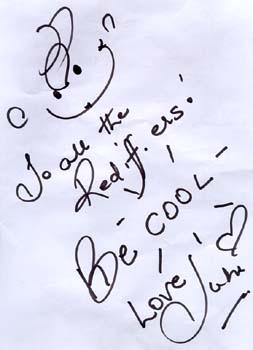 To all the
Rediffers!
BE COOL
Love Juhi